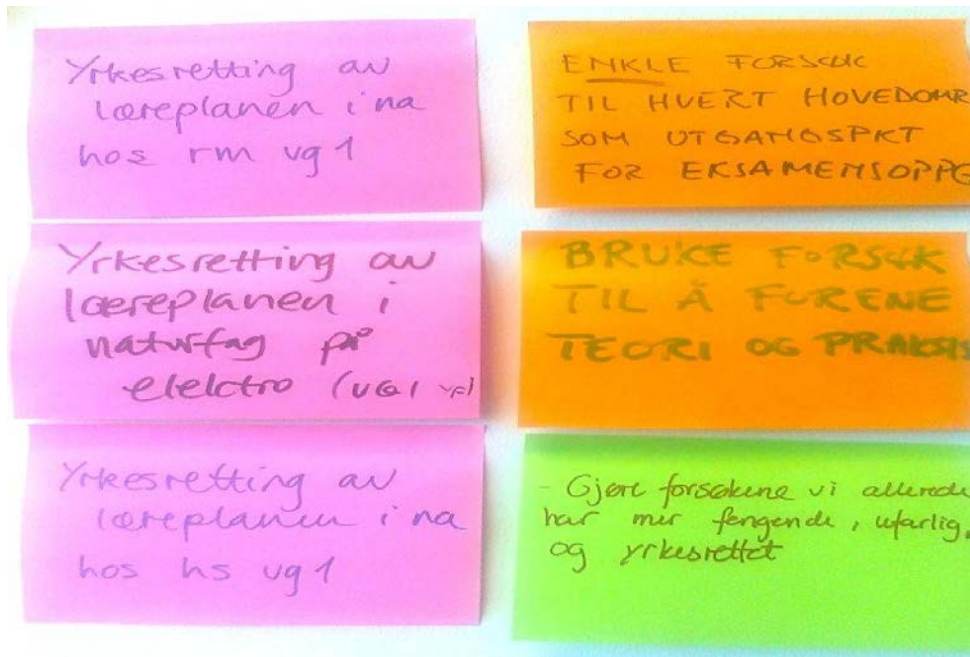 Yrkesretting av
læreplanen i na
hos rm vg1
Yrkesretting av
læreplanen i
naturfag på
elektro (VG1 YF)
Yrkesretting av
læreplanen i na
hos hs vg1
ENKLE FORSØK
TIL HVERT HOVEDOMR
SOM UTGANGSPKT
FOR EKSAMENSOPPG
BRUKE FORSØK
TIL Å FORENE
TEORI OG PRAKSIS
- Gjøre forsøkene vi allerede
har mer fengende, ufarlig,
og yrkesrettet